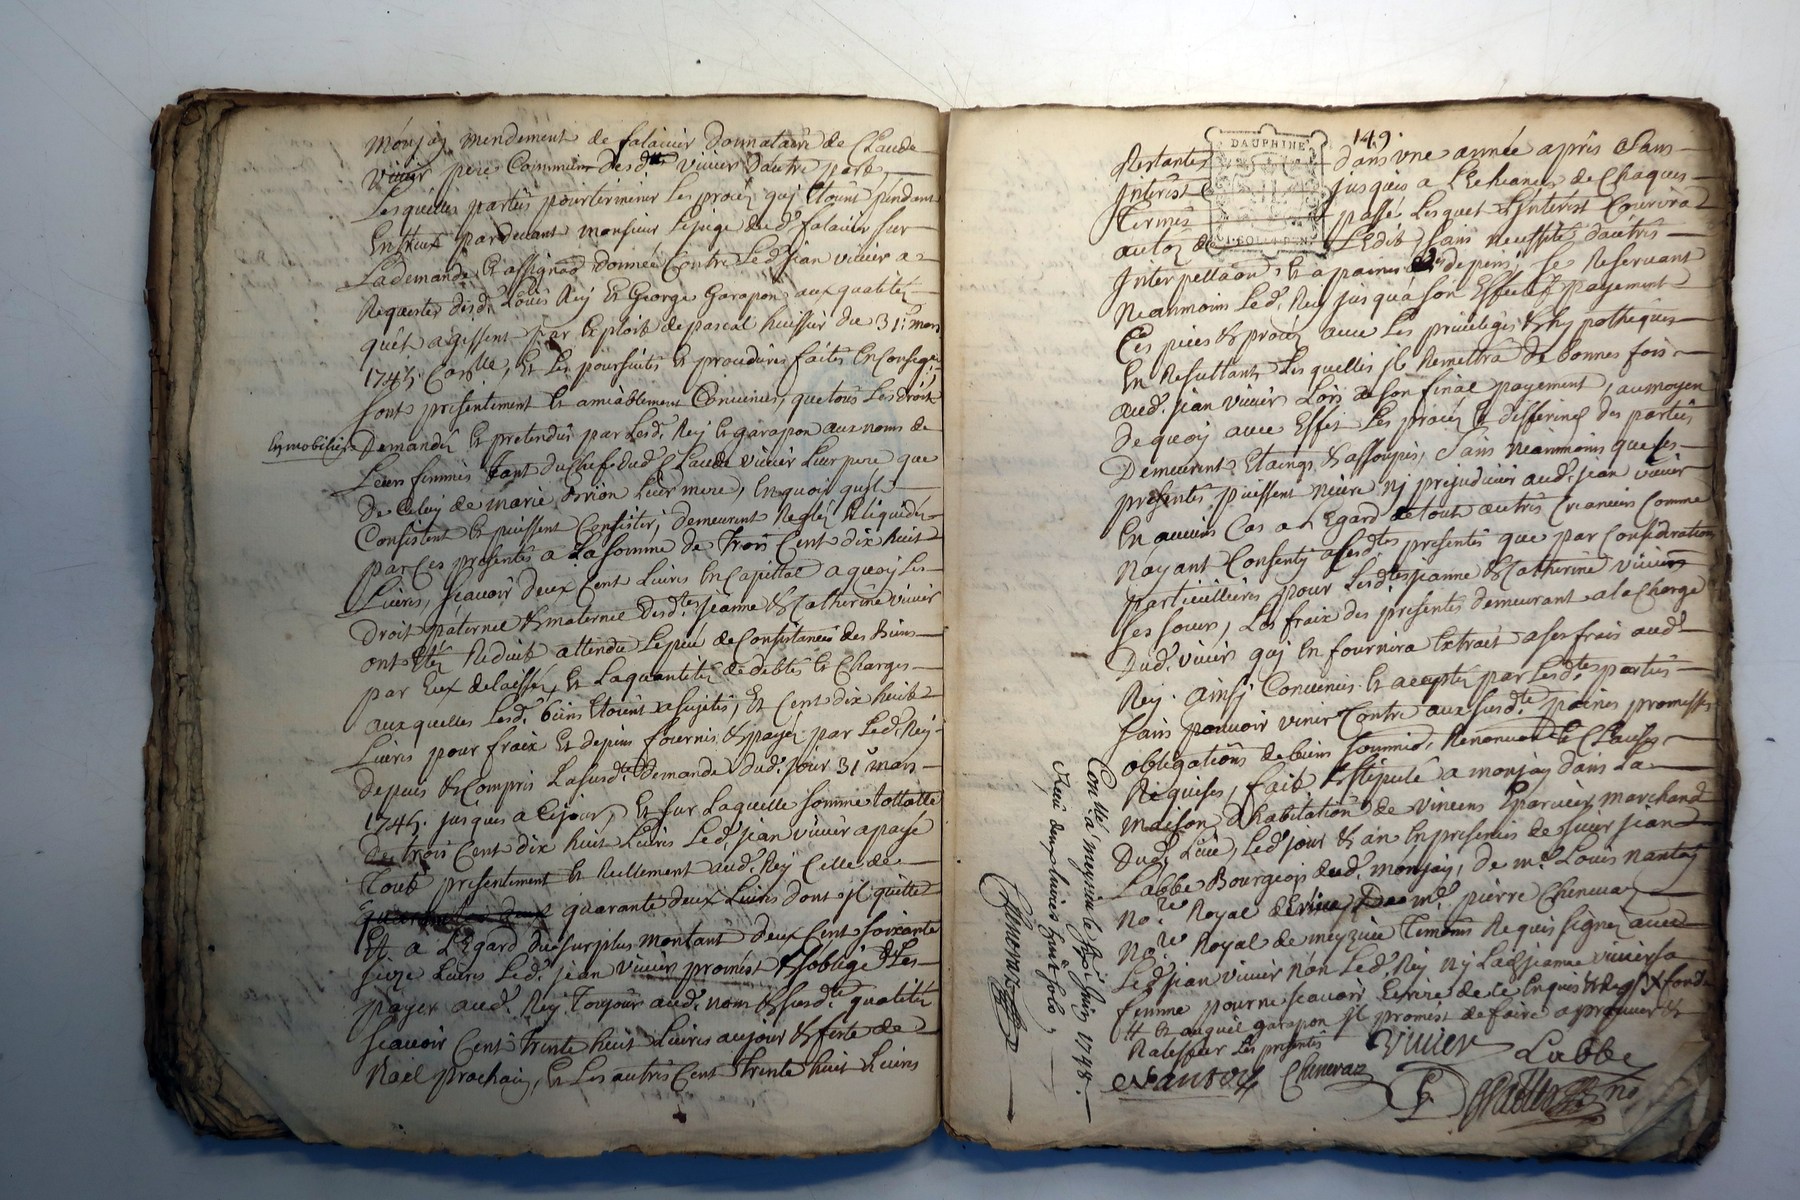 Monjay mendement de falavier donnataire de Claude
Vivier pere Commun desd.tes vivier d'autre part,
Lesquelles parties pour terminer les procez quj Etoint pendant
Entreux pardevant monsieur le juge dud.t falavier sur
La demande et assignãon donnée Contre led. jean vivier a
Requeste desd. Louis Rey et George Garapon aux qualitez
quêt agissent par Exploit de pascal huissier du 31.e mars
1745 Con.llé, et les poursuites et procedures faites En Conseq.ce
sont presentement et amiablement Convenus, que tous les droits
Immobiliers
Demandés et pretendus par lesd. Rey et garapon aux noms de
Leurs femmes tant du Chef dud. Claude vivier leur pere que
De Celuy de marie Orion leur mere, En quoy quils
Consistent et puissent Consister, demeurent Reglés et liquidés
par Ces presentes a la somme de trois Cent dix huit
Livres, scavoir deux Cent livres En Capittal a quoy les
Droit paternel & maternel desd.tes jeanne & Catherine vivier
ont Eté Reduit attendu le peu de Consistance des biens
par Eux delaissés, et la quantité de debtes et Charges
auxquelles lesd. biens Etoient asujetis, et Cent dix huit
Livres pour fraix et depens fournis & payés par led. Rey
Depuis & Compris la susd.te demande dud. jour 31 mars
1745. jusques a Ce jour, et sur laquelle somme tottalle
De trois Cent dix huit Livres led. jean vivier a payé
Tout presentement et Reellement aud. Rey Celle de
quarante deux Livres dont jl quitte
Et a l'Egard du surplus montant deux Cent soixante
seize Livres led. jean vivier promest & s'oblige de les
payer aud. Rey toujours aud. nom & susd.te qualitez
scavoir Cent trente huit Livres au jour & feste de
Noël prochain, et les autres Cent trente huit Livres
149.
DAUPHINE
Restantes dans une année après sans
Interest jusques a l'Echeance de Chaques
Termes passé lesquel l'Interest Courira
autoz de l'Edit, sans necessité d'autres
Interpellãon, et a paines de depens, se Reservant
Neanmoins led. Rey jusqu'a son Effectif payement
Ces pieces & procez avec les privileges & hypotheques
En Resultants lesquelles jl Remettra de bonnes fois
aud. jean vivier lors de son final payement, au moyen
De quoy avec Effet les procez et differend des parties
Demeurent Etaings & assoupis, sans neanmoins que les
presentes puissent nuire nj prejudicier aud. jean vivier
En aucuns Cas a l'Egard de tout autres Creanciers Comme
Nayant Consenty a lesd.tes presentes que par Consideration
particuillieres pour lesd.tes jeanne & Catherine vivier
ses soeurs, les fraix des presentes demeurant a la Charge
Dud. vivier quj En fournira Extrait a ses frais aud.
Rey. ainsj Convenus et acceptés par lesd.tes parties
sans pouvoir venir Contre aux susd.tes paines promesses
obligations de biens soumis, Renonce & Clauses
Requises, fait & stipulé a monjay dans la
maison d'habitation de vincens Eparvier marchand
Dud. Lieu, led. jour & an En presences de sieur jean
Labbe Bourgeois dud. monjay, de m.e Louis Nantas
No.re Royal m.e pierre Chenevaz
No.re Royal de meyzieu temoins Requis signez avec
led. jean vivier non led. Rey nj lad. jeanne vivier sa
femme pour ne scavoir Ecrire de ce Enquis & Requis
& auquel garapon jl promest de faire aprouver &
Ratiffier les presentes
vivier Labbe
Nantas Chenevaz
No.
Con.llé a meyzieu le juin 1748.
Reçu deux livres huit sols,
Chenevaz